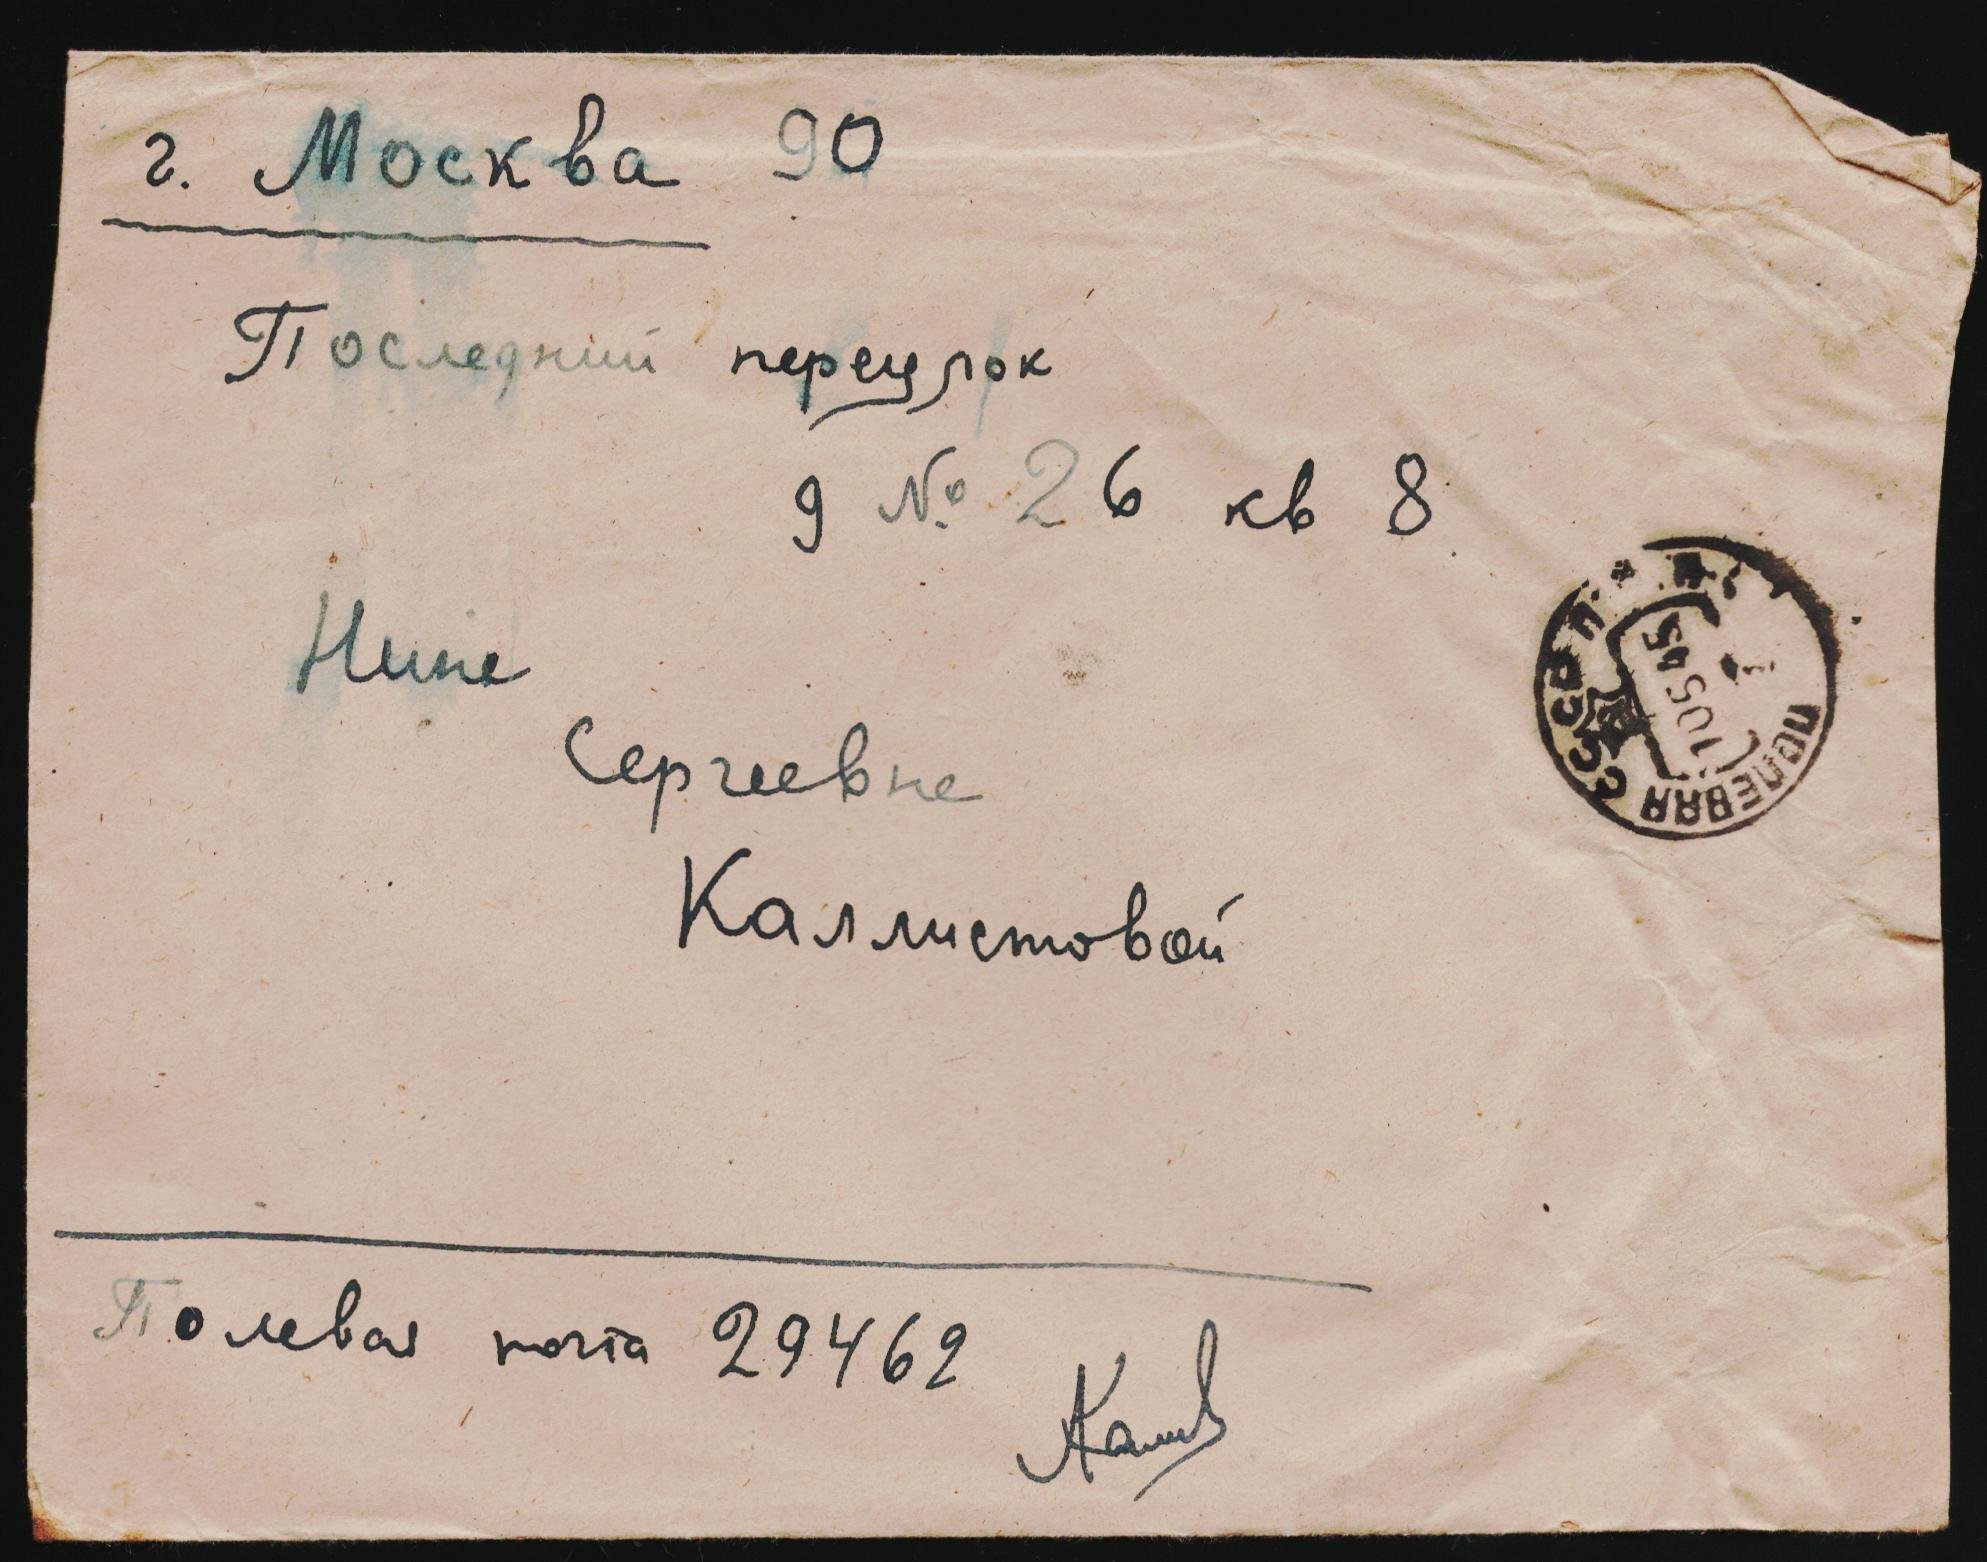 г. Москва 90
Последний переулок
д № 26 кв 8
Нине
Сергеевне
Каллистовой
СССР
ПОЛЕВАЯ
10 5 45
Полевая почта 29462